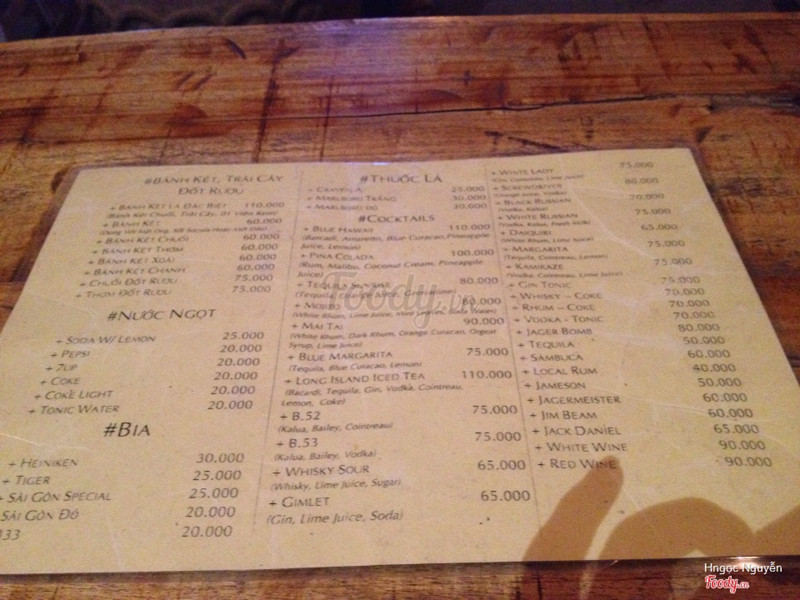 #Bánh Kẹt, Trái Cây
Đốt Rượu
+ Bánh Kẹt Lá Đặc Biệt 110.000
(Bánh Kẹt Chuối, Trái Cây, 01 Viên Kem)
+ Bánh Kẹt 60.000
+ Bánh Kẹt Chuối 60.000
+ Bánh Kẹt Thơm 60.000
+ Bánh Kẹt Xoài 60.000
+ Bánh Kẹt Chanh 60.000
+ Chuối Đốt Rượu 75.000
+ Thơm Đốt Rượu 75.000
#Nước Ngọt
+ Soda w/ Lemon 25.000
+ Pepsi 20.000
+ 7up 20.000
+ Coke 20.000
+ Coke Light 20.000
+ Tonic Water 20.000
#Bia
+ Heiniken 30.000
+ Tiger 25.000
+ Sài Gòn Special 25.000
Sài Gòn Đỏ 20.000
333 20.000
#Thuốc Lá
+ Craven A 25.000
+ Marlboro Trắng 30.000
+ Marlboro Đỏ 30.000
#Cocktails
+ Blue Hawaii 110.000
(Bacradi, Amaretto, Blue Curacao, Pineapple
Juice, Lemon)
+ Pina Colada 100.000
(Rum, Malibu, Coconut Cream, Pineapple
Juice)
+ Tequila Sunrise 80.000
+ Mojito 60.000
(White Rhum, Lime Juice, Mint Leaves, Soda Water)
+ Mai Tai 90.000
(White Rhum, Dark Rhum, Orange Curacao, Orgeat
Syrup, Lime Juice)
+ Blue Margarita 75.000
(Tequila, Blue Curacao, Lemon)
+ Long Island Iced Tea 110.000
(Bacardi, Tequila, Gin, Vodka, Cointreau,
Lemon, Coke)
+ B.52 75.000
(Kalua, Bailey, Cointreau)
+ B.53 75.000
(Kalua, Bailey, Vodka)
+ Whisky Sour 65.000
(Whisky, Lime Juice, Sugar)
+ Gimlet 65.000
(Gin, Lime Juice, Soda)
+ White Lady 75.000
(Gin, Cointreau, Lime Juice)
+ Screwdriver 80.000
(Orange Juice, Vodka)
+ Black Russian 70.000
(Vodka, Kalua)
+ White Russian 75.000
(Vodka, Kalua, Fresh Milk)
+ Daiquiri 65.000
(White Rhum, Lime Juice)
+ Margarita 75.000
(Tequila, Cointreau, Lemon)
+ Kamikaze 75.000
(Vodka, Cointreau, Lime Juice)
+ Gin Tonic 75.000
+ Whisky – Coke 70.000
+ Rhum – Coke 70.000
+ Vodka - Tonic 70.000
+ Jager Bomb 80.000
+ Tequila 50.000
+ Sambuca 60.000
+ Local Rum 40.000
+ Jameson 50.000
+ Jagermeister 60.000
+ Jim Beam 60.000
+ Jack Daniel 65.000
+ White Wine 90.000
+ Red Wine 90.000
Foody.vn
Hngọc Nguyễn
Foody.vn